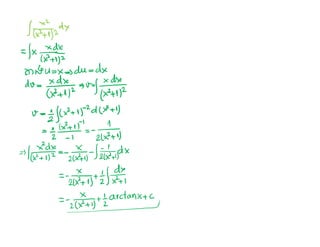 ∫ x²/(x²+1)² dx
= ∫ x xdx/(x²+1)²
u=x ⇒ du=dx
dv = xdx/(x²+1)² ⇒ v = ∫ xdx/(x²+1)²
v = 1/2 ∫ (x²+1)⁻² d(x²+1)
= 1/2 (x²+1)⁻¹/-1 = - 1/2(x²+1)
⇒ ∫ x²dx/(x²+1)² = - x/2(x²+1) - ∫ -1/2(x²+1) dx
= - x/2(x²+1) + 1/2 ∫ dx/x²+1
= - x/2(x²+1) + 1/2 arctanx + c